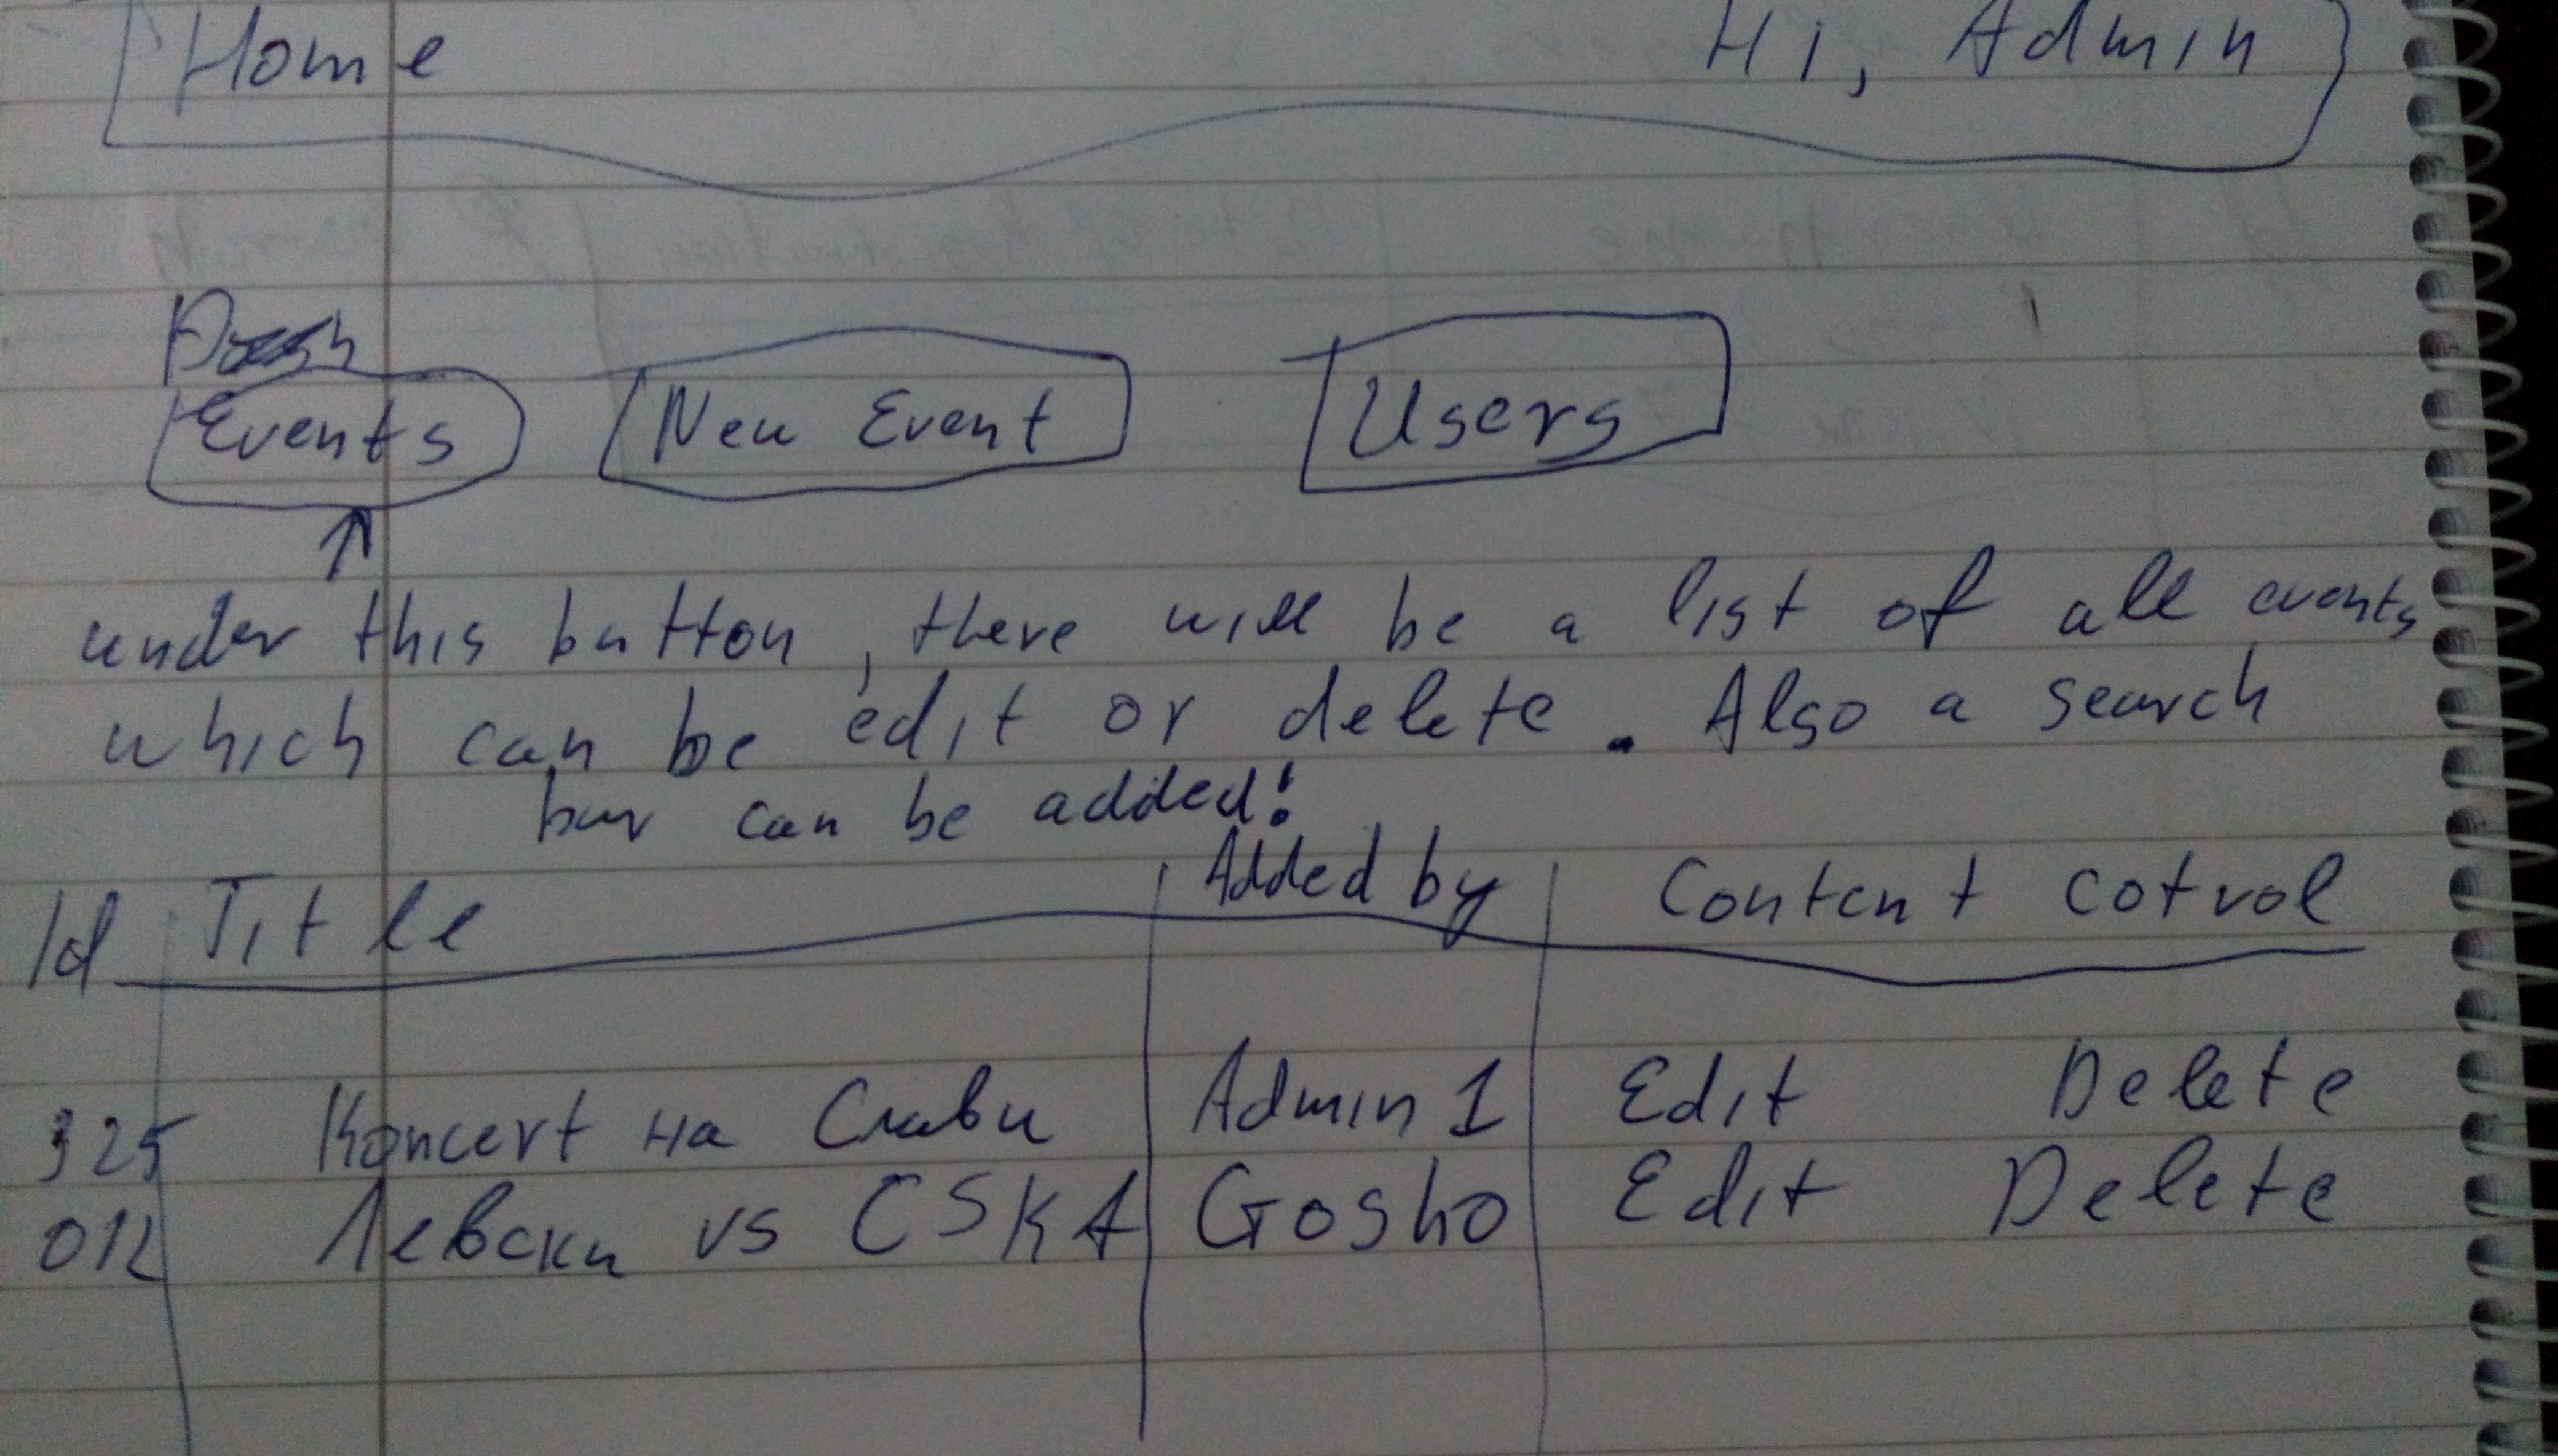 Home Hi, Admin
Events New Event Users
under this button, there will be a list of all events
which can be edit or delete. Also a search
bar can be added!
Id Title Added by Content cotrol
325 Koncert на Слави Admin 1 Edit Delete
012 Левски vs CSKA Gosho Edit Delete